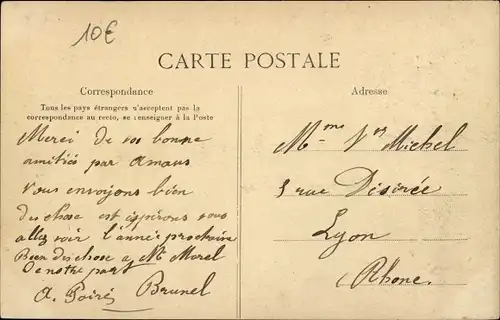 10€
CARTE POSTALE
Correspondance
Tous les pays étrangers n'acceptent pas la
correspondance au recto, se renseigner à la Poste
Merci de vos bonne
amitiés par amour
Vous envoyons bien
des chose est espirons vous
allez voir l'année prochaine
Bien des chose a Mr Morel
De notre part
A. Poiré Brunel
Adresse
Mme Vve Michel
rue Désirée
Lyon
Rhone.